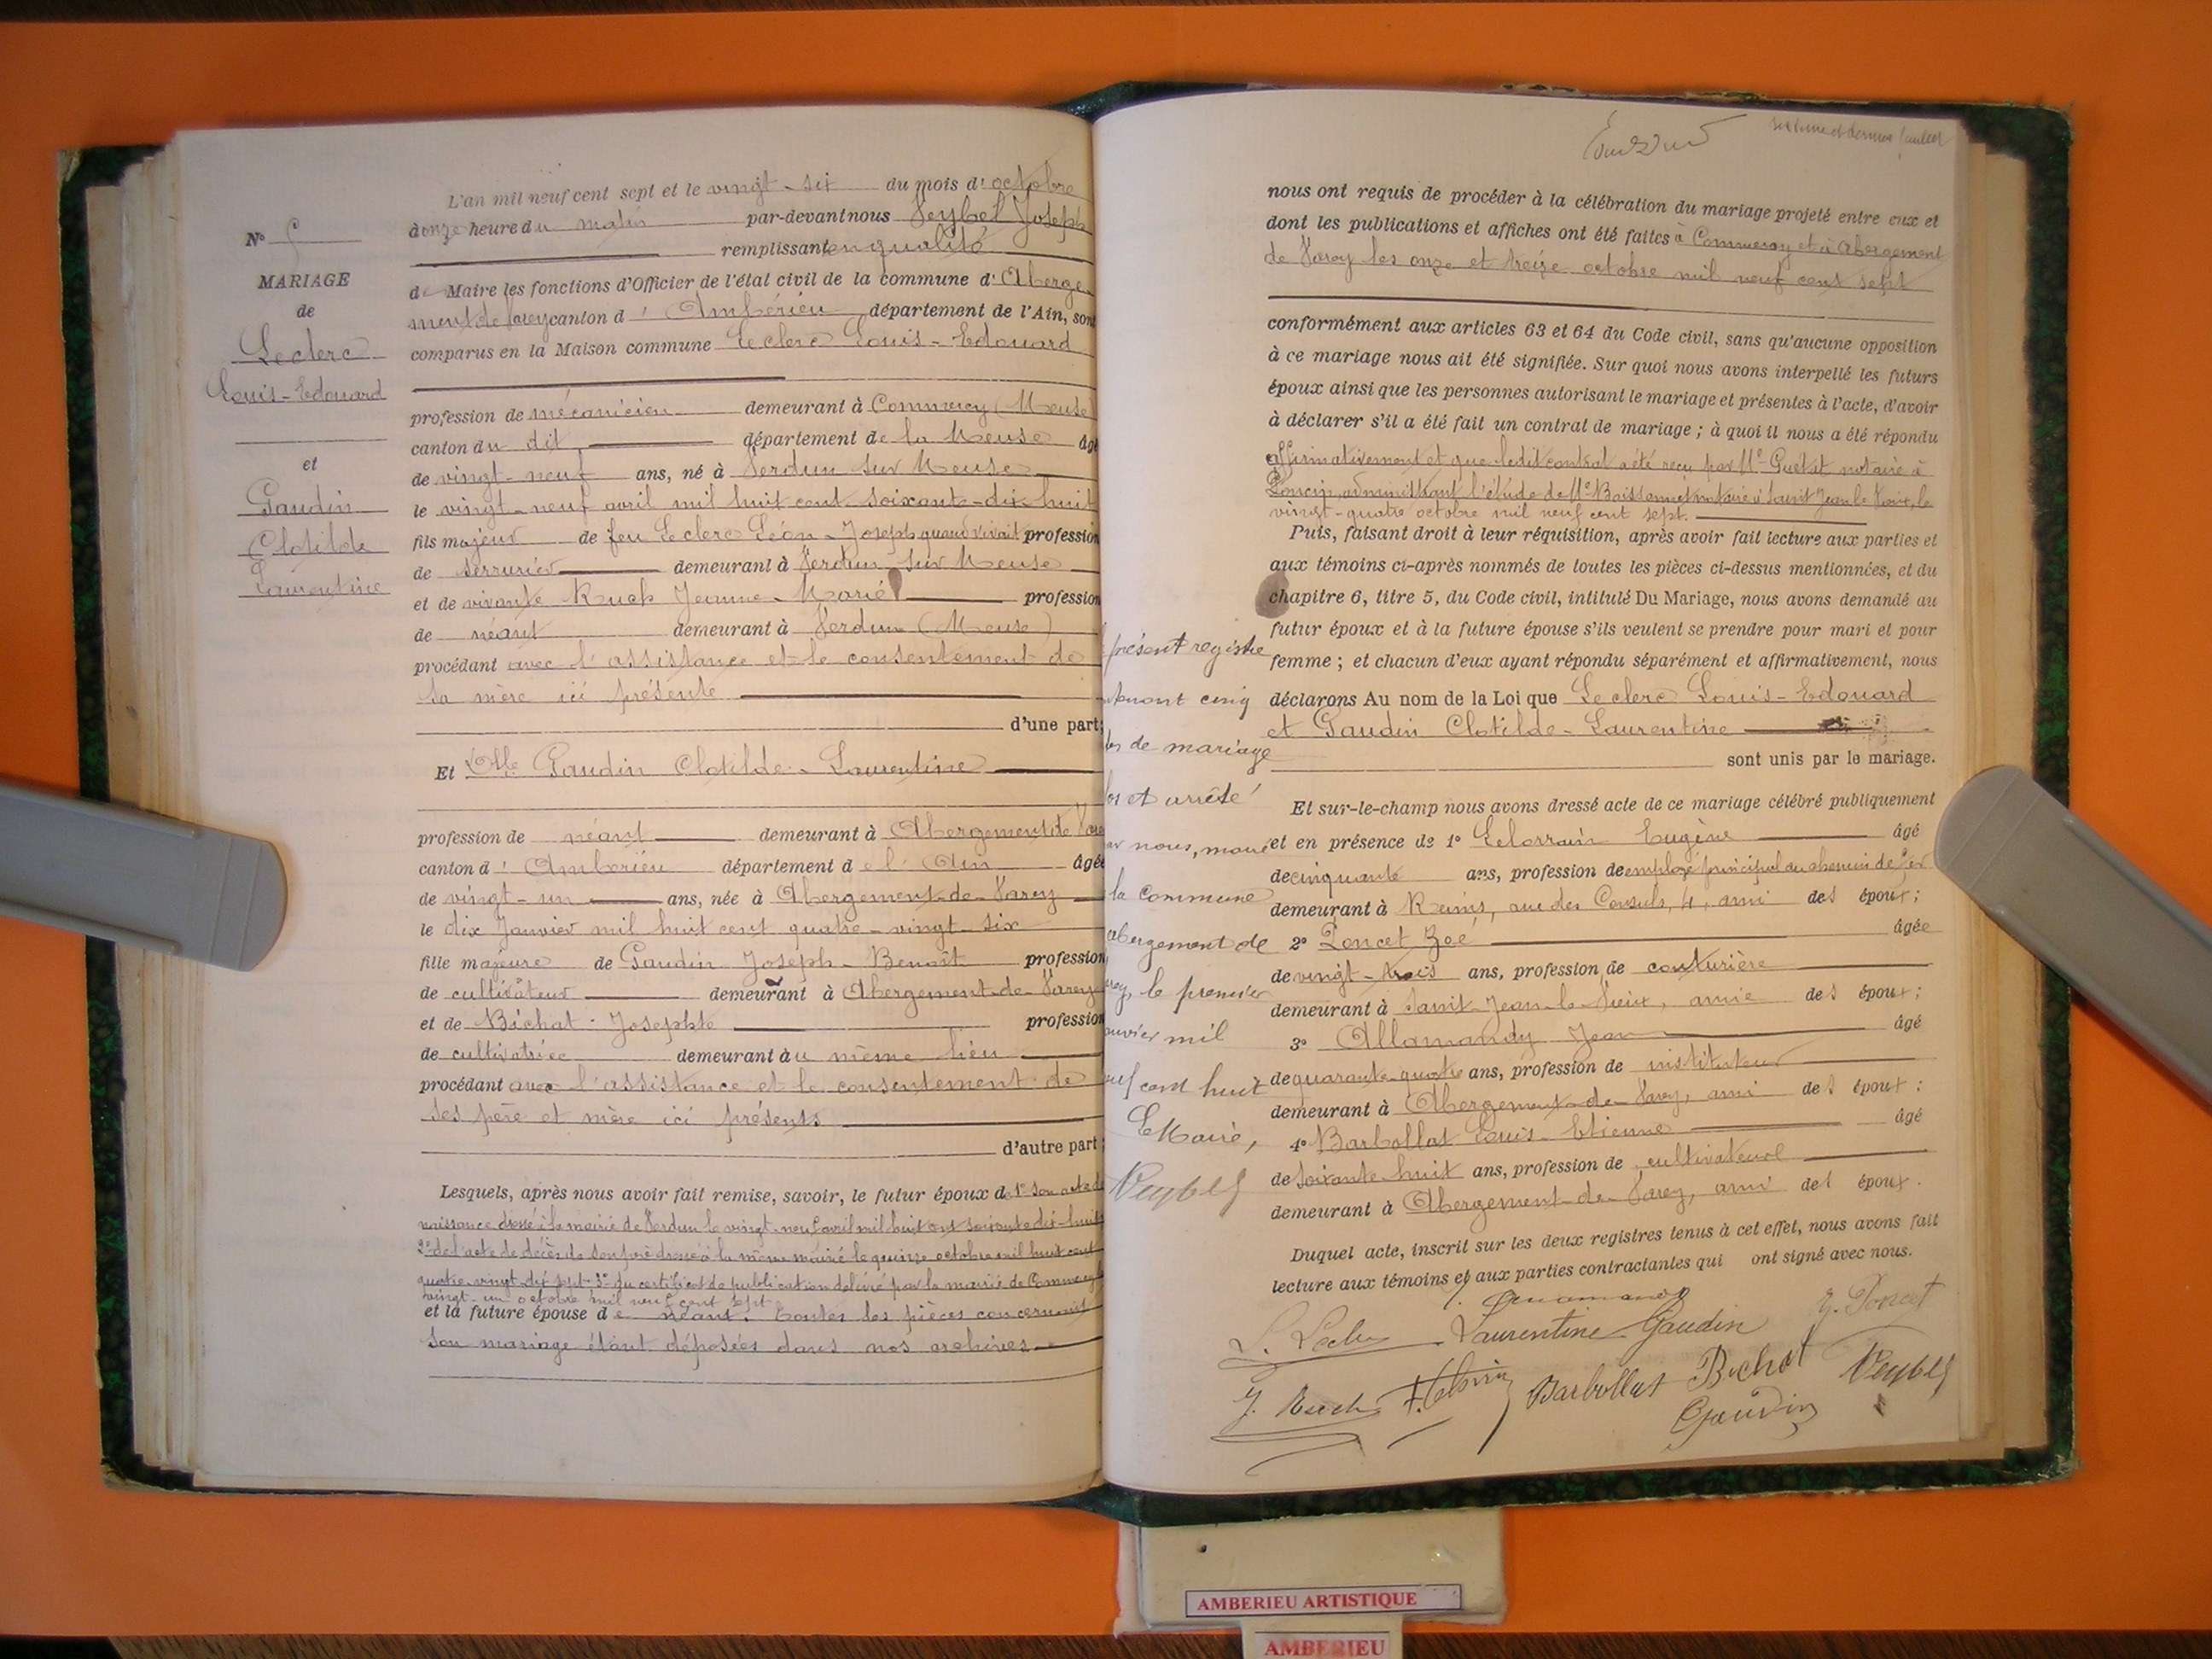 N° 5
MARIAGE
de
Leclerc
Louis-Edouard
et
Gaudin
Clotilde
Laurentine
L'an mil neuf cent sept et le vingt-six du mois d'octobre
à onze heure du matin par-devant nous Veybel Joseph
remplissant en qualité
de Maire les fonctions d'Officier de l'état civil de la commune d'Aberge-
ment de Varey canton d'Ambérieu, département de l'Ain, sont
comparus en la Maison commune Leclerc Louis-Edouard
profession de mécanicien demeurant à Commercy (Meuse)
canton du dit département de la Meuse âgé
de vingt-neuf ans, né à Verdun sur Meuse
le vingt-neuf avril mil huit cent soixante-dix-huit
fils majeur de feu Leclerc Léon-Joseph quand vivait profession
de serrurier demeurant à Verdun sur Meuse
et de vivante Ruch Jeanne-Marie profession
de néant demeurant à Verdun (Meuse)
procédant avec l'assistance et le consentement de
sa mère ici présente
d'une part;
Et Dlle Gaudin Clotilde-Laurentine
profession de néant demeurant à Abergement de Varey
canton d'Ambérieu département de l'Ain âgée
de vingt-un ans, née à Abergement-de-Varey
le dix Janvier mil huit cent quatre-vingt-six
fille majeure de Gaudin Joseph-Benoît profession
de cultivateur demeurant à Abergement-de-Varey
et de Bichat Josephte profession
de cultivatrice demeurant au même lieu
procédant avec l'assistance et le consentement de
ses père et mère ici présents
d'autre part;
Lesquels, après nous avoir fait remise, savoir, le futur époux de 1° son acte de
naissance dressé à la mairie de Verdun le vingt-neuf avril mil huit cent soixante dix-huit
2° de l'acte de décès de son père dressé à la même mairie le quinze octobre mil huit cent
quatre-vingt-dix sept 3° du certificat de publication délivré par la mairie de Commercy le
vingt-un octobre mil neuf cent sept
et la future épouse de néant. Toutes les pièces concernant
son mariage étant déposées dans nos archives
nous ont requis de procéder à la célébration du mariage projeté entre eux et
dont les publications et affiches ont été faites à Commercy et à Abergement
de Varey les onze et treize octobre mil neuf cent sept
conformément aux articles 63 et 64 du Code civil, sans qu'aucune opposition
à ce mariage nous ait été signifiée. Sur quoi nous avons interpellé les futurs
époux ainsi que les personnes autorisant le mariage et présentes à l'acte, d'avoir
à déclarer s'il a été fait un contrat de mariage; à quoi il nous a été répondu
affirmativement et que ledit contrat a été reçu par Me Guétat notaire à
Poncin, administrant l'étude de Me Boissonnet notaire à Saint Jean le Vieux, le
vingt-quatre octobre mil neuf cent sept.
Puis, faisant droit à leur réquisition, après avoir fait lecture aux parties et
aux témoins ci-après nommés de toutes les pièces ci-dessus mentionnées, et du
chapitre 6, titre 5, du Code civil, intitulé Du Mariage, nous avons demandé au
futur époux et à la future épouse s'ils veulent se prendre pour mari et pour
femme; et chacun d'eux ayant répondu séparément et affirmativement, nous
déclarons Au nom de la Loi que Leclerc Louis-Edouard
et Gaudin Clotilde-Laurentine
sont unis par le mariage.
Et sur-le-champ nous avons dressé acte de ce mariage célébré publiquement
et en présence de 1° Lelorrain Eugène âgé
de cinquante ans, profession de employé principal au chemin de fer
demeurant à Reims, rue des Consuls, 4, ami des époux;
2° Poncet Zoé âgée
de vingt-trois ans, profession de couturière
demeurant à Saint Jean-le-Vieux, amie des époux;
3° Allamandy Jean âgé
de quarante-quatre ans, profession de instituteur
demeurant à Abergement-de-Varey, ami des époux;
4° Barbollat Louis-Etienne âgé
de soixante-huit ans, profession de cultivateur
demeurant à Abergement-de-Varey, ami des époux.
Duquel acte, inscrit sur les deux registres tenus à cet effet, nous avons fait
lecture aux témoins et aux parties contractantes qui ont signé avec nous.
présent registre
cinq
de mariage
et arrêté
nous, maire
la commune
abergement de
le premier
mil
cent huit
Le Maire,
Veybel
Laurentine Gaudin
Z. Poncet
J. Ruch
Barbollat
Bichat
Veybel
Gaudin
AMBERIEU ARTISTIQUE
AMBERIEU